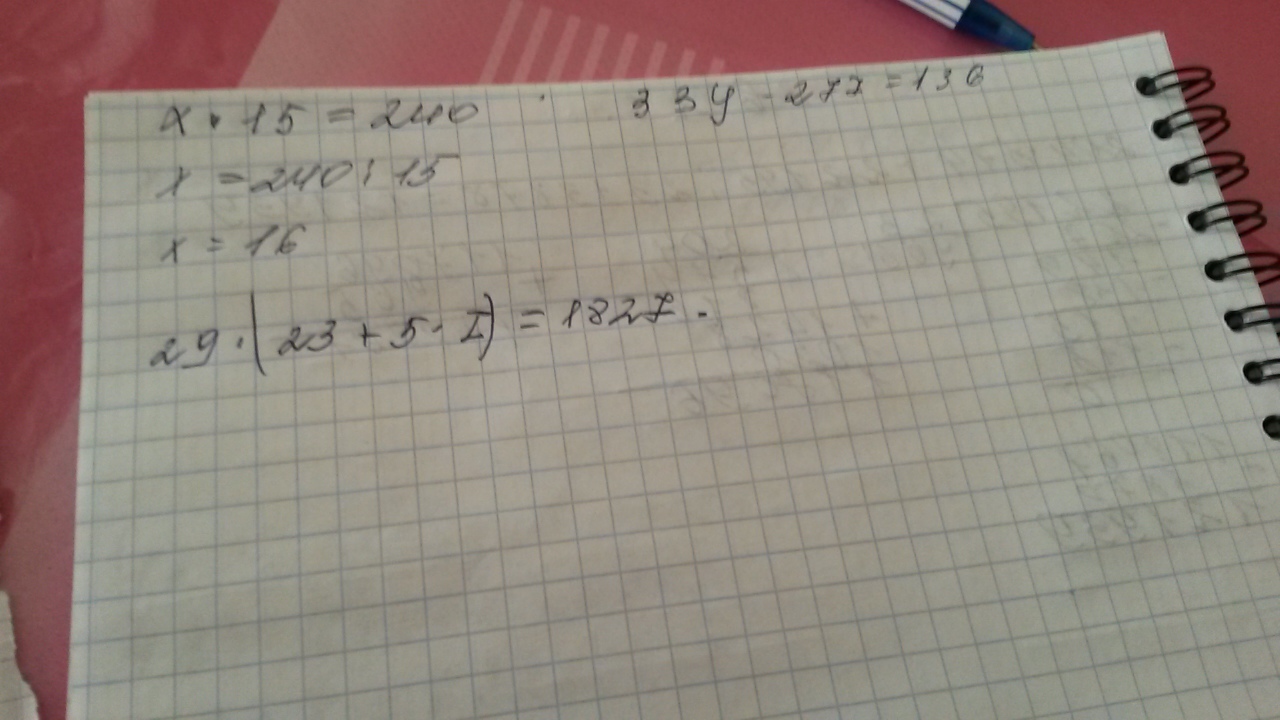 x · 15 = 240
33y - 27x = 136
x = 240 : 15
x = 16
29 · (23 + 5 · I) = 1827.